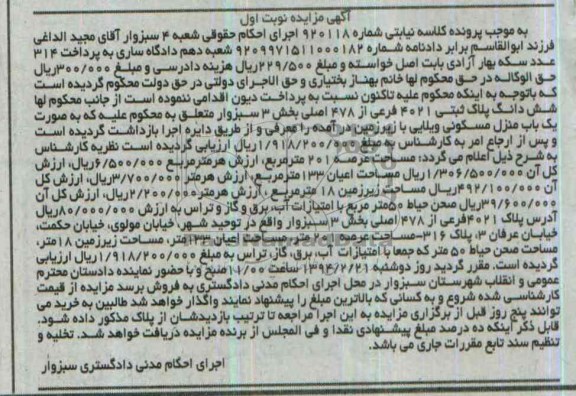 آگهی مزایده نوبت اول
به موجب پرونده کلاسه نیابتی شماره ۹۲۰۱۱۸ اجرای احکام حقوقی شعبه ۴ سبزوار آقای مجید الداغی
فرزند ابوالقاسم برابر دادنامه شماره ۹۲۰۹۹۷۱۵۱۱۰۰۰۱۸۲ شعبه دهم دادگاه ساری به پرداخت ۳۱۴
عدد سکه بهار آزادی بابت اصل خواسته و مبلغ ۲۲۹/۵۰۰ریال هزینه دادرسی و مبلغ ۳۰۰/۰۰۰ریال
حق الوکاله در حق محکوم لها خانم بهناز بختیاری و حق الاجرای دولتی در حق دولت محکوم گردیده است
که باتوجه به اینکه محکوم علیه تاکنون نسبت به پرداخت دیون اقدامی ننموده است از جانب محکوم لها
شش دانگ پلاک ثبتی ۴۰۲۱ فرعی از ۴۷۸ اصلی بخش ۳ سبزوار متعلق به محکوم علیه که به صورت
یک باب منزل مسکونی ویلایی با زیرزمین درآمده را معرفی و از طریق دایره اجرا بازداشت گردیده است
و پس از ارجاع امر به کارشناس به مبلغ ۱/۹۱۸/۲۰۰/۰۰۰ ریال ارزیابی گردیده است نظریه کارشناس
به شرح ذیل اعلام می گردد: مساحت عرصه ۲۰۱ مترمربع، ارزش هرمترمربع ۶/۵۰۰/۰۰۰ریال، ارزش
کل آن ۱/۳۰۶/۵۰۰/۰۰۰ ریال مساحت اعیان ۱۳۳مترمربع، ارزش هرمتر ۳/۷۰۰/۰۰۰ریال، ارزش کل
آن ۴۹۲/۱۰۰/۰۰۰ریال مساحت زیرزمین ۱۸ مترمربع، ارزش هرمتر۲/۲۰۰/۰۰۰ریال، ارزش کل آن
۳۹/۶۰۰/۰۰۰ریال صحن حیاط ۵۰متر مربع با امتیازات آب، برق و گاز و تراس به ارزش ۸۰/۰۰۰/۰۰۰ریال
آدرس پلاک ۴۰۲۱فرعی از ۴۷۸ اصلی بخش ۳ سبزوار واقع در توحید شهر، خیابان مولوی، خیابان حکمت،
خیابان عرفان ۳، پلاک ۳۱۶-مساحت عرصه ۲۰۱ متر، مساحت اعیان ۱۳۳متر، مساحت زیرزمین ۱۸متر،
مساحت صحن حیاط ۵۰ متر که جمعا با امتیازات آب، برق، گاز، تراس به مبلغ ۱/۹۱۸/۲۰۰/۰۰۰ریال ارزیابی
گردیده است. مقرر گردید روز دوشنبه ۱۳۹۴/۲/۲۱ ساعت ۱۰/۰۰ صبح و با حضور نماینده دادستان محترم
عمومی و انقلاب شهرستان سبزوار در محل اجرای احکام مدنی دادگستری به فروش برسد مزایده از قیمت
کارشناسی شده شروع و به کسانی که بالاترین مبلغ را پیشنهاد نمایند واگذار خواهد شد طالبین به خرید می
توانند پنج روز قبل از برگزاری مزایده به این اجرا مراجعه تا ترتیب بازدیدشان از پلاک مذکور داده شود.
قابل ذکر اینکه ده درصد مبلغ پیشنهادی نقدا و فی المجلس از برنده مزایده دریافت خواهد شد. تخلیه و
تنظیم سند تابع مقررات جاری می باشد.
اجرای احکام مدنی دادگستری سبزوار